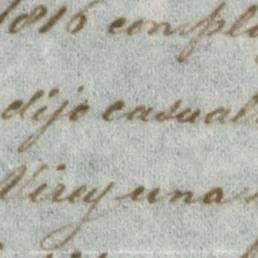 1816 con
dijo casual
Virey una